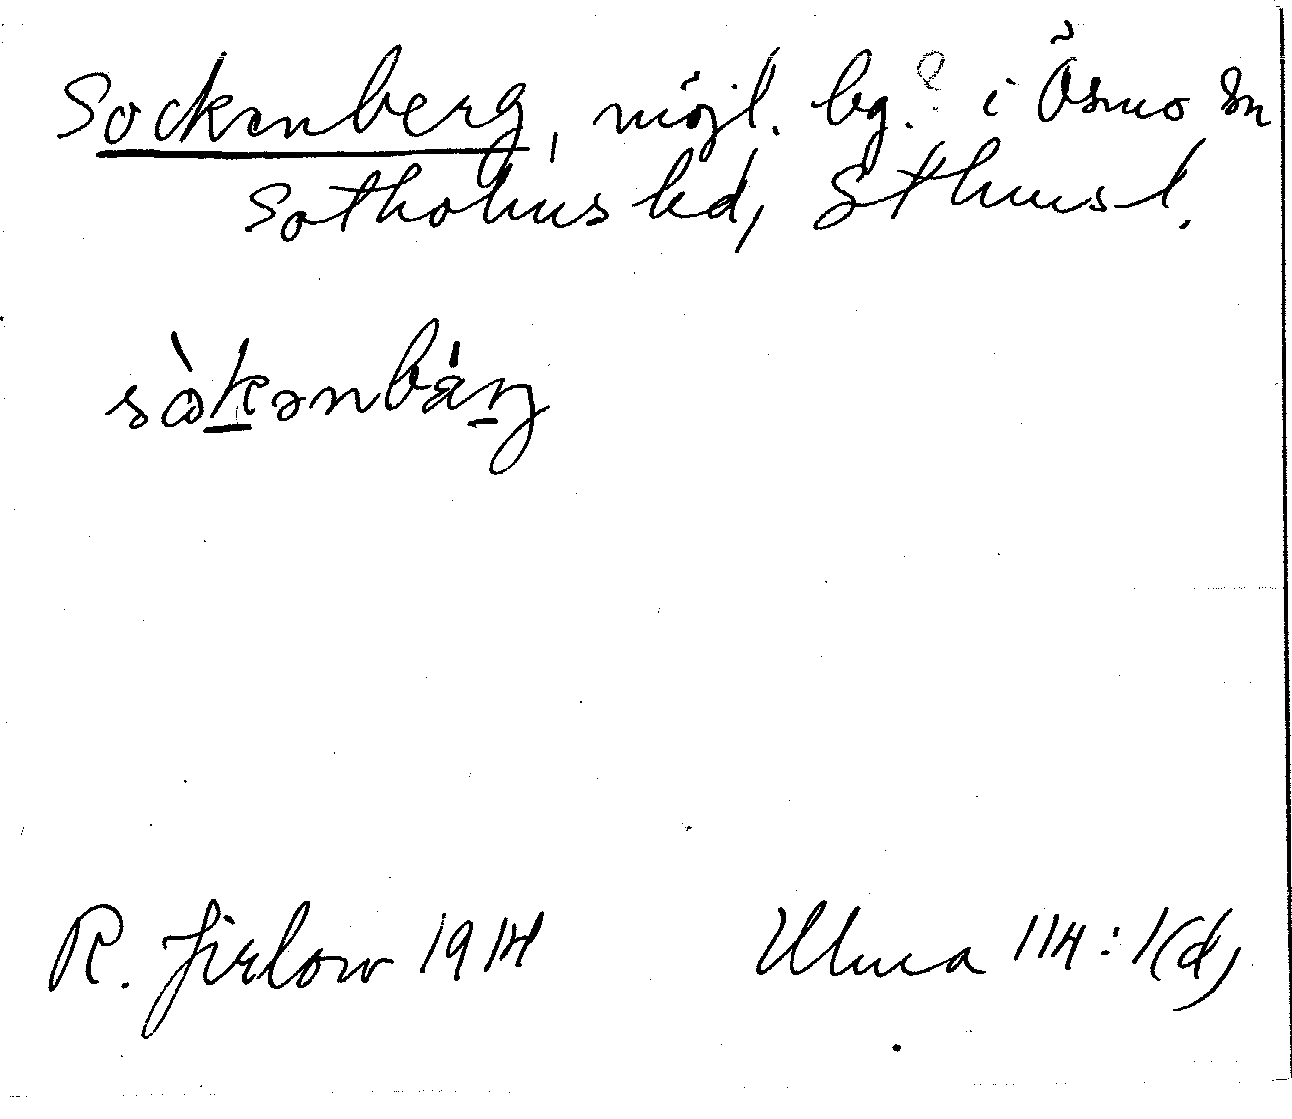 Sockenberg, möjl. bg.? i Ösmo sn
Sotholms hd, Sthms l.
sòkənbárj
R. Jirlow 1914 Ulma 114:1(d)